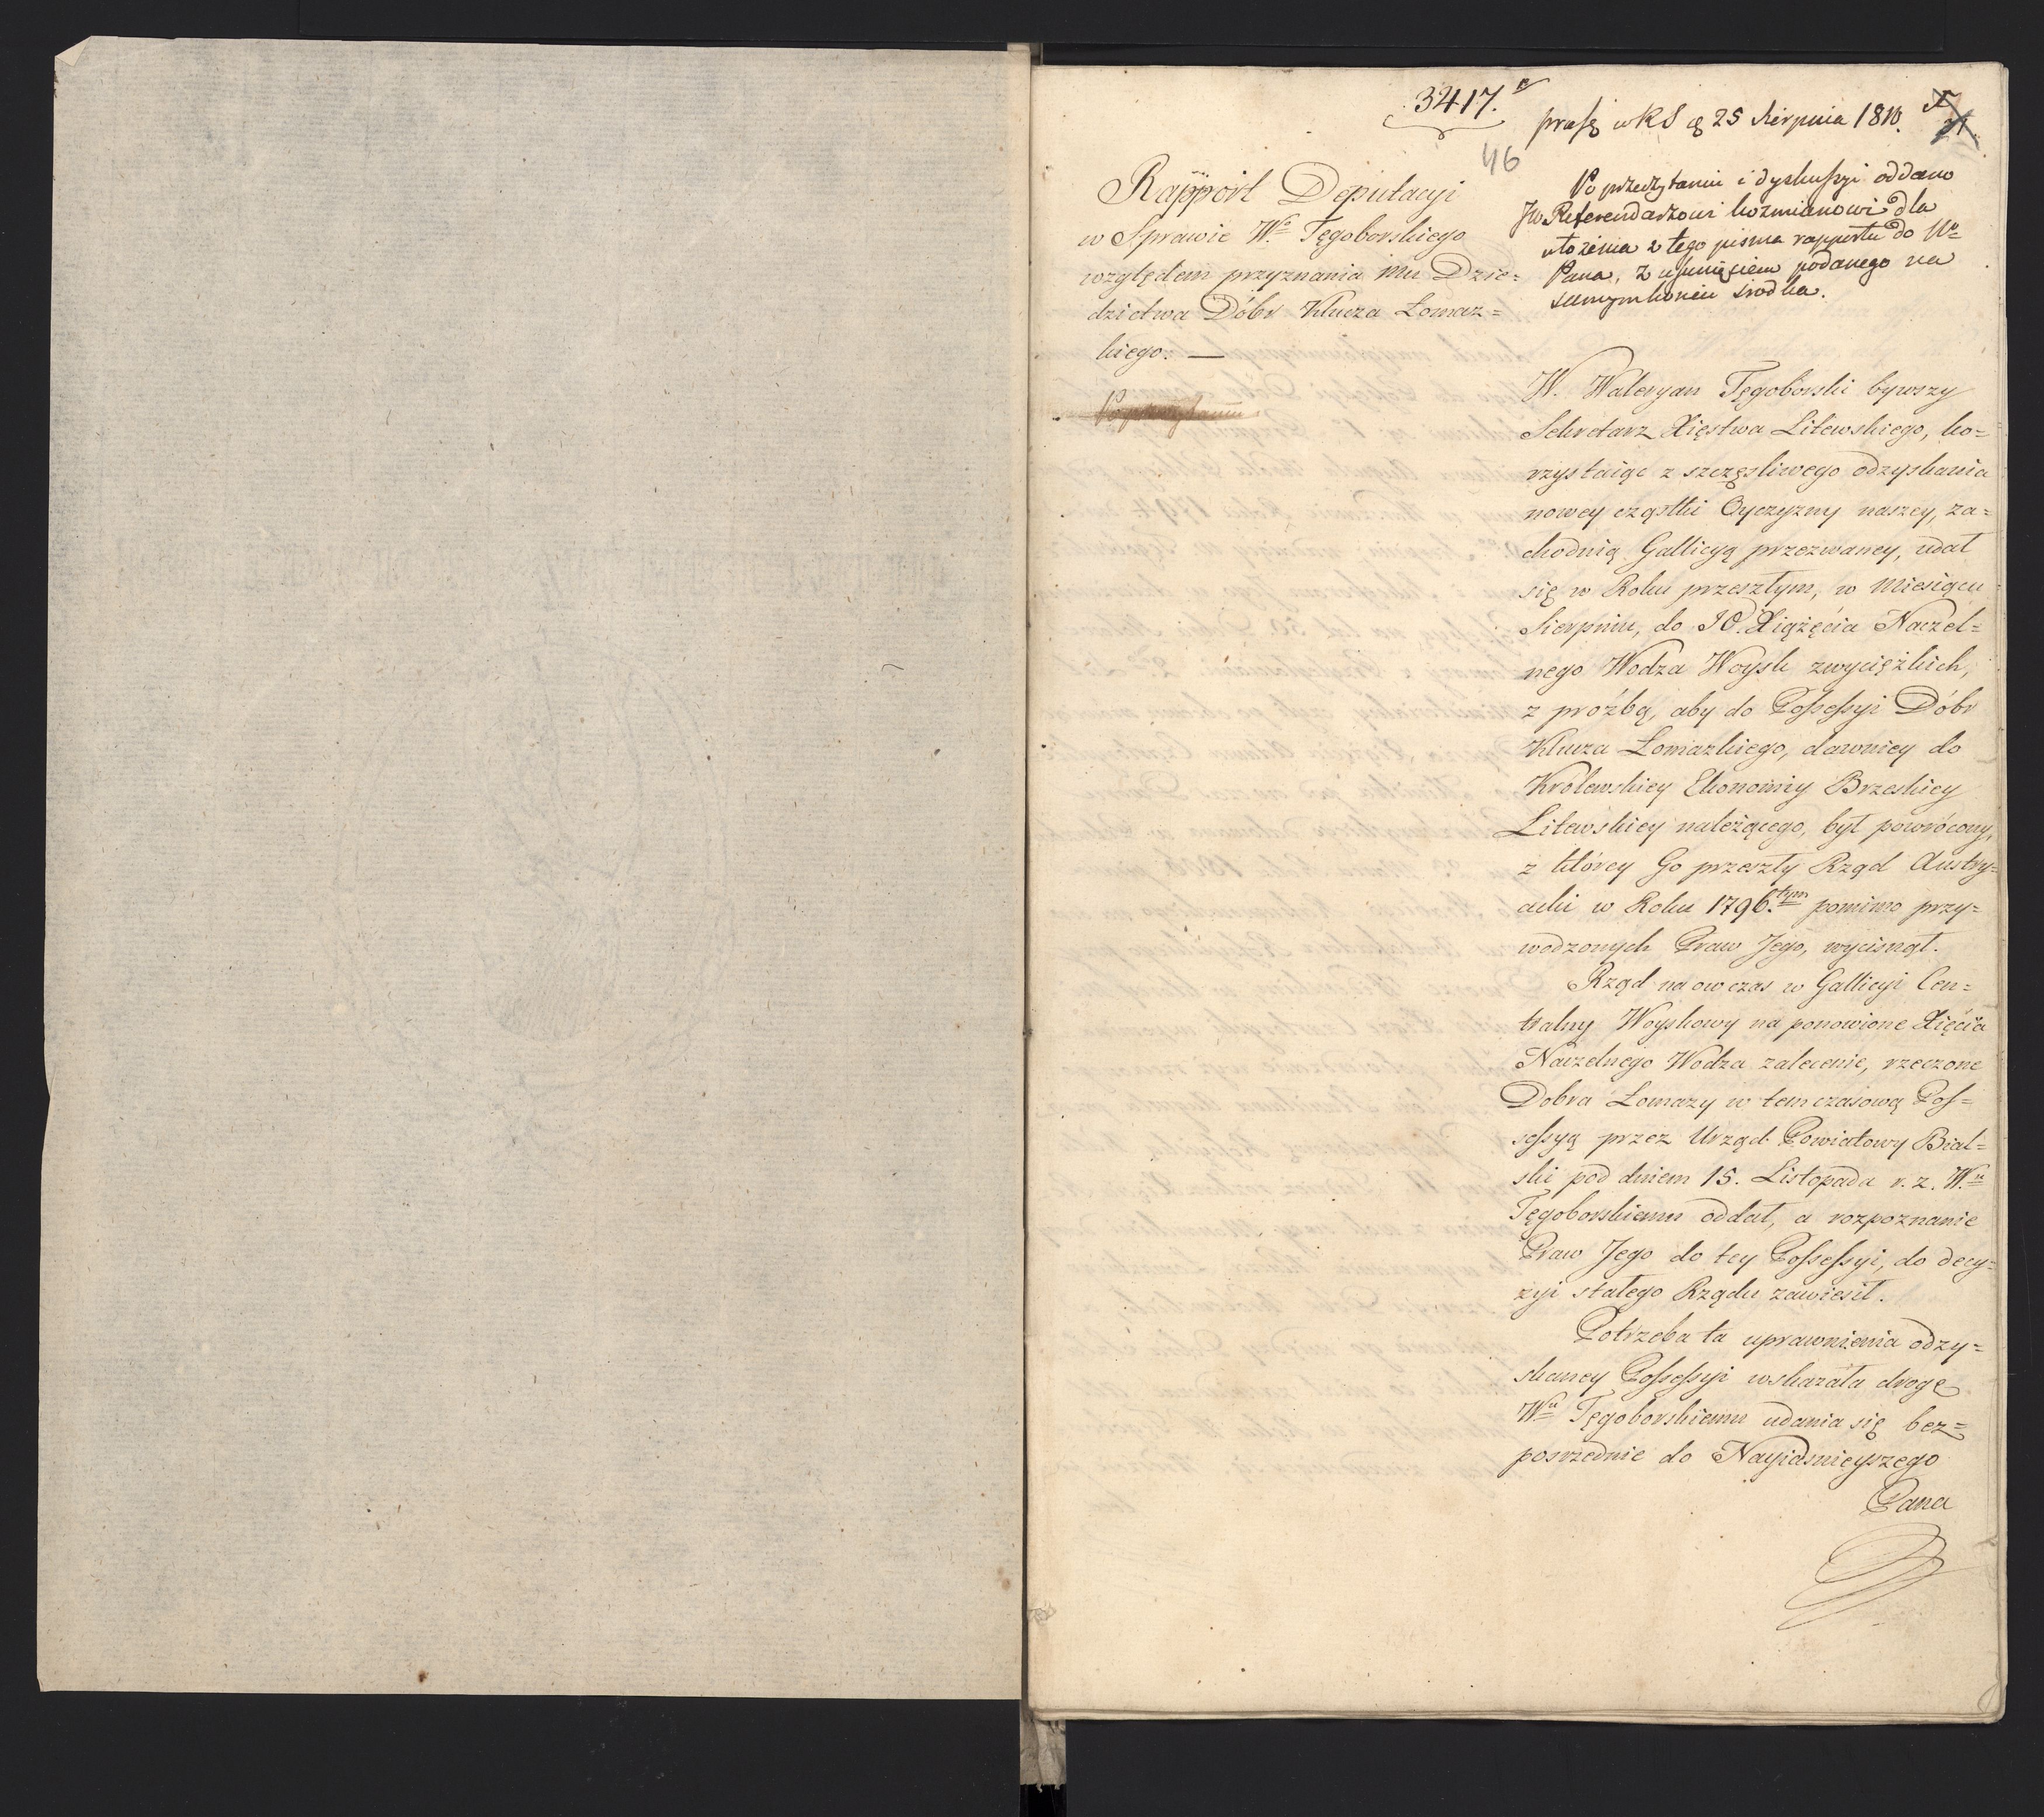 3417.
46
praes w RS d 25 Sierpnia 1810.
Rapport Deputacyi
w Sprawie Wo. Tęgoborskiego
względem przyznania mu Dzie=
dzictwa Dóbr Klucza Łomaz=
kiego. —
Po przeczytaniu
Po przeczytaniu i dyskussyi oddano
JW Referendarzowi Kozmianowi dla
ułożenia z tego pisma rapportu do No
Pana, z usunięciem podanego na
samym końcu srodka.
W. Waleryan Tęgoborski bywszy
Sekretarz Xięstwa Litewskiego, ko=
rzystaiąc z szczęsliwego odzyskania
nowey cząstki Oyczyzny naszey, za=
chodnią Gallicyą przezwaney, udał
się w Roku przeszłym, w Miesiącu
Sierpniu, do JO. Xiążęcia Naczel=
nego Wodza Woysk zwycięzkich,
z proźbą, aby do Possessyi Dóbr
Klucza Łomazkiego, dawniey do
Królewskiey Ekonomiy Brzeskiey
Litewskiey należącego, był powrócony,
z którey Go przeszły Rząd Austry=
acki w Roku 1796.tym pomimo przy=
wodzonych Praw Jego, wycisnął.
Rząd na ow czas w Gallicyi Cen=
tralny Woyskowy na ponowione Xięcia
Naczelnego Wodza zalecenie, rzeczone
Dobra Łomazy w tem czasową Pos=
sessyą przez Urząd Powiatowy Bial=
ski pod dniem 15. Listopada r. z. Wu
Tęgoborskiemu oddał, a rozpoznanie
Praw Jego do tey Possessyi, do decy=
zyi stałego Rządu zawiesił.
Potrzeba ta uprawnienia odzy=
skaney Possessyi wskazała drogę
Wu Tęgoborskiemu udania się bez=
posrzednie do Nayiasnieyszego
Pana